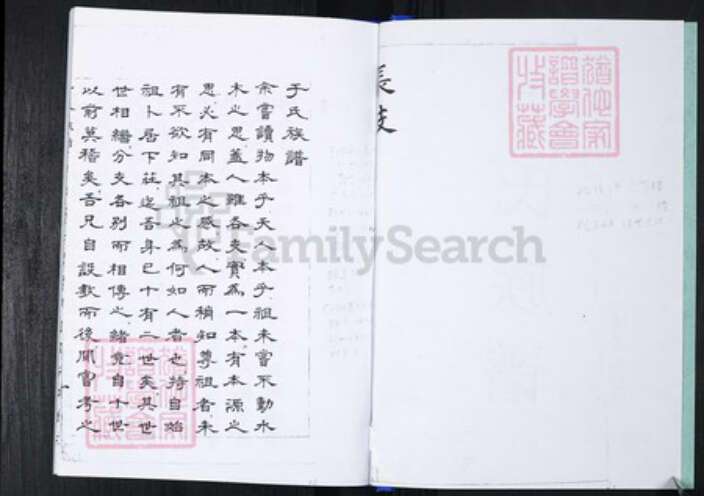 長支
于氏族譜
余嘗讀物本乎天人本乎祖未嘗不動水
木之思蓋人雖各支實為一本有本源之
思必有同本之感故人而稍知尊祖者未
有不欲知其祖之為何如人者也特自始
祖卜居下莊迄吾身已十有二世矣其世
世相繼分支各別而相傳之緒竟自十世
以前莫稽矣吾兄自設教而後開嘗考之
FamilySearch